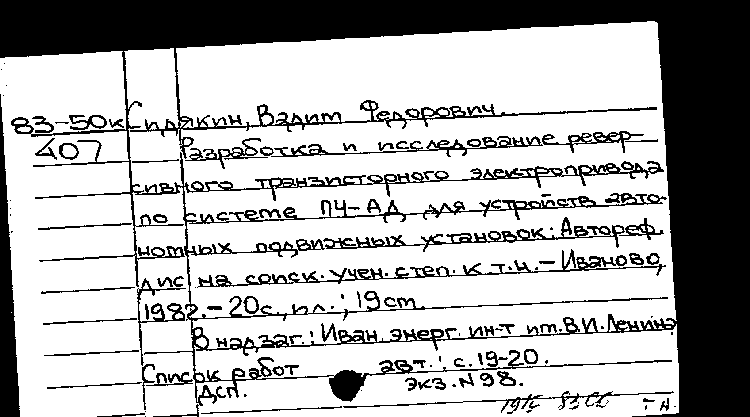 83-50к Сидякин, Вадим Федорович.
407 Разработка и исследование ревер-
сивного транзисторного электропривода
по системе ПЧ-АД для устройств авто-
номных подвижных установок: Автореф.
дис на соиск. учен. степ. к.т.н. – Иваново,
1982. – 20с., ил.; 19 см.
В надзаг.: Иван. энерг. ин-т им. В.И. Ленина
Список работ авт.: с. 19-20.
Дсп. Экз. N 98.